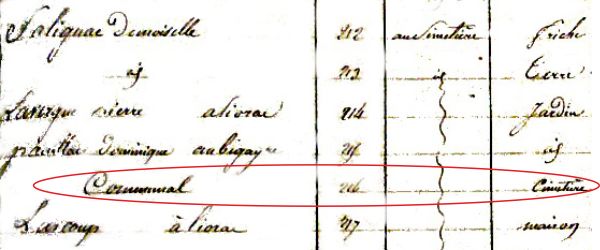 Salignac Demoiselle 212 au Cimetière friche
id 213 id terre
pierre aliorac 214 Jardin
Dominique aubigayre 215 id
Communal 216 Cimetière
Lascoup à liorac 217 maison